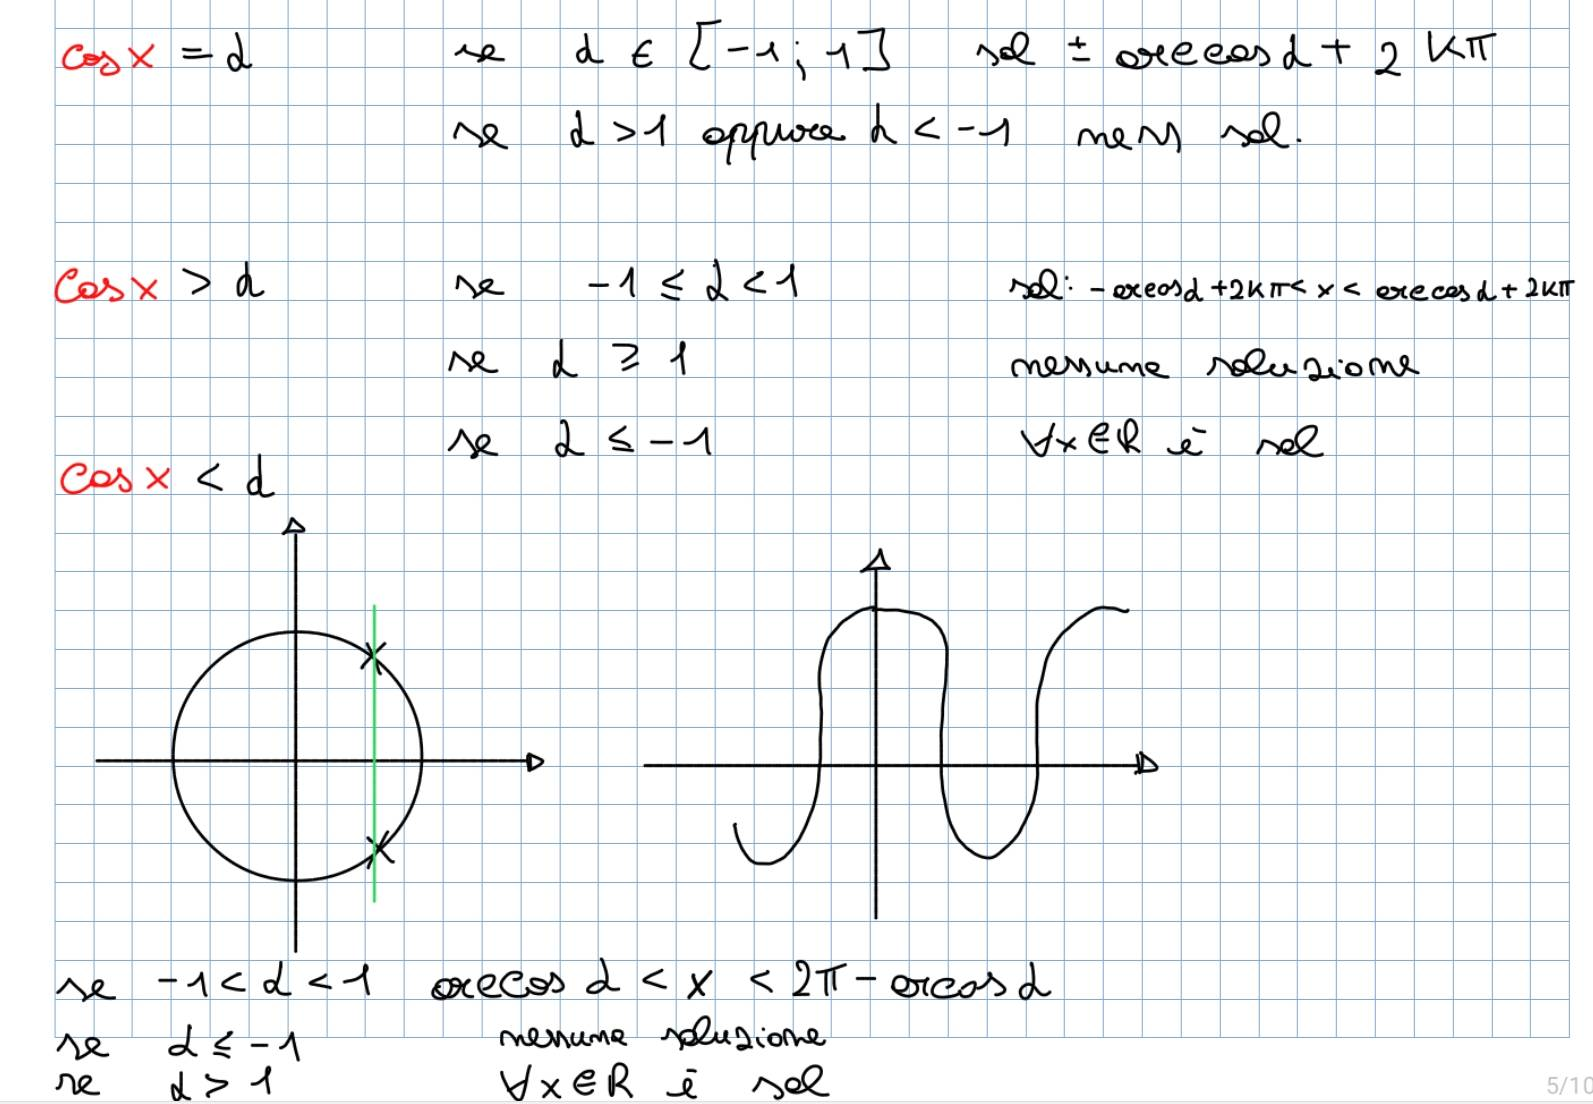 cos x = α se α ∈ [-1; 1] sol ± arccos α + 2 kπ
se α > 1 oppure α < -1 ness sol.
cos x > α se -1 ≤ α < 1 sol: - arccos α + 2kπ < x < arccos α + 2kπ
se α ≥ 1 nessuna soluzione
se α ≤ -1 ∀x∈R è sol
cos x < α
se -1 < α < 1 arccos α < x < 2π - arcos α
se α ≤ -1 nessuna soluzione
se α > 1 ∀x∈R è sol
5/10